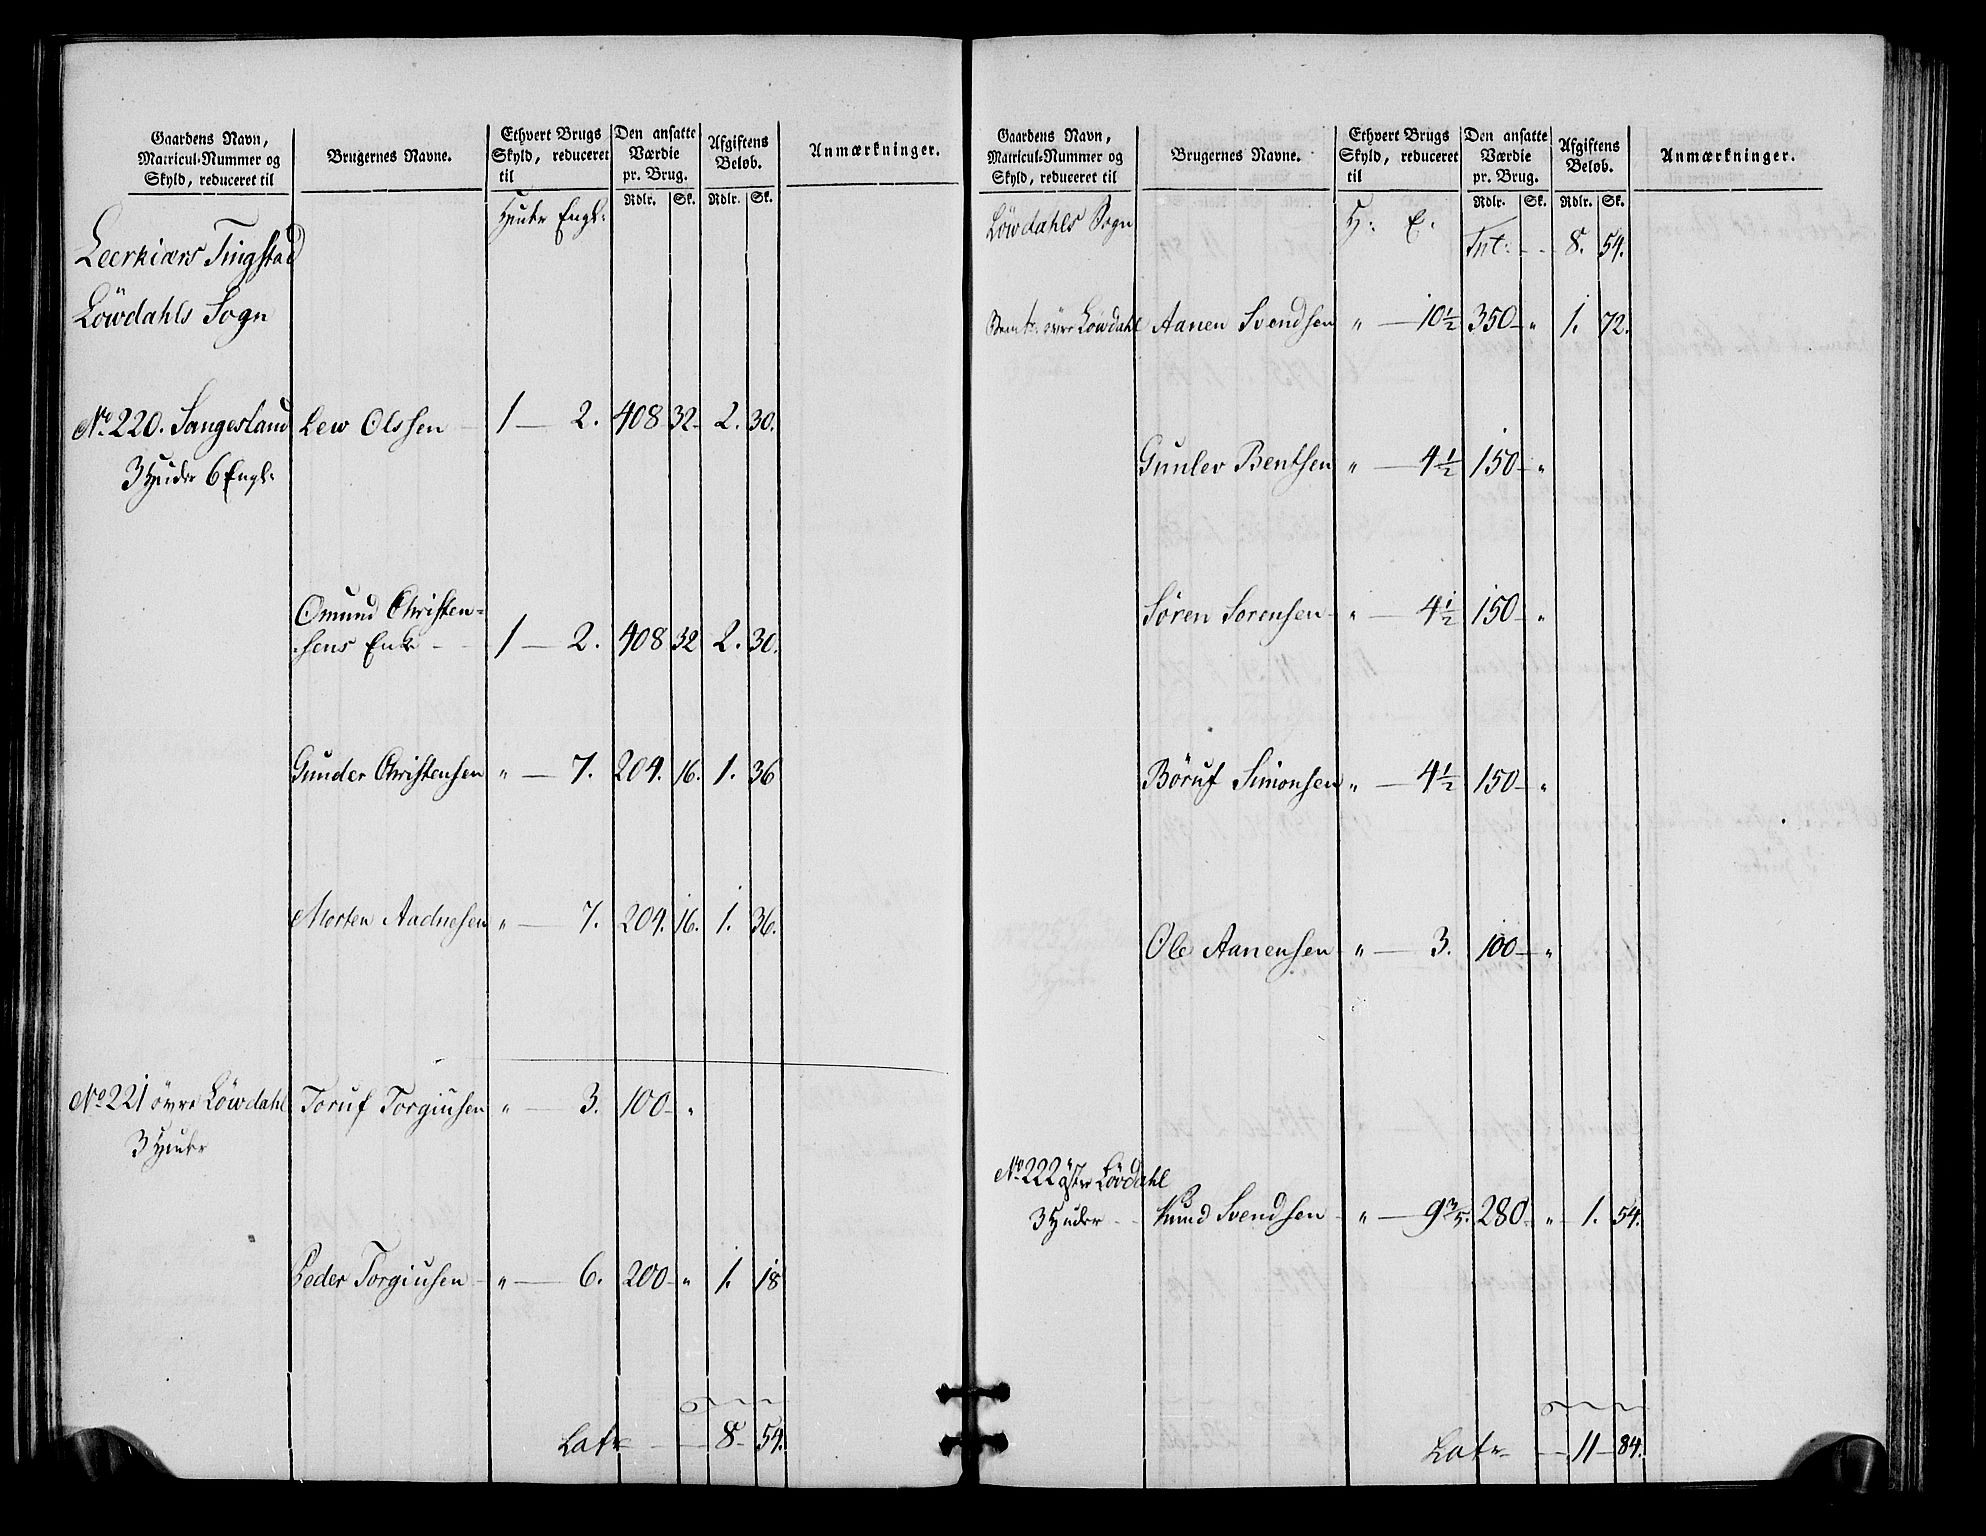 Gaardens Navn, Matricul-Nummer og Skyld, reduceret til | Brugernes Navne. | Ethvert Brugs Skyld, reduceret til | Den ansatte Værdie pr. Brug. | Afgiftens Beløb. | Anmærkninger.
Rdlr. | Sk. | Rdlr. | Sk.
Huder Engl:
Leerkiærs Tingstad
Löwdahls Sogn
No. 220. Sangesland | Lew Olssen | 1 — 2. | 408 | 32 | 2. | 30.
3 Huder 6 Engl:
Omund Christen=
sens Enke | 1 — 2. | 408 | 32 | 2. | 30.
Gunder Christensen | " — 7. | 204. | 16. | 1. | 36
Morten Aadnesen | " — 7. | 204. | 16. | 1. | 36.
No 221 övre Löwdahl | Toruf Torgiusen | " — 3. | 100 | "
3 Huder
Peder Torgiusen | " — 6. | 200 | " | 1. | 18
Latr | 8 | 54.
Gaardens Navn, Matricul-Nummer og Skyld, reduceret til | Brugernes Navne. | Ethvert Brugs Skyld, reduceret til | Den ansatte Værdie pr. Brug. | Afgiftens Beløb. | Anmærkninger.
Rdlr. | Sk. | Rdlr. | Sk.
Löwdahls Sogn | H: E.
Trt: | 8. | 54.
övre Löwdahl | Aanen Svendsen | " — 10½ | 350 | " | 1. | 72.
Gunlev Bentsen | " — 4½ | 150 | "
Sören Sorensen | " — 4½ | 150 | "
Böruf Simonsen | " — 4½ | 150 | "
Ole Aanensen | " — 3. | 100 | "
No. 222 östre Lövdahl
3 Huder | Knud Svendsen | " — 9 3/5. | 280 | " | 1. | 54.
Latr | 11 | 84.